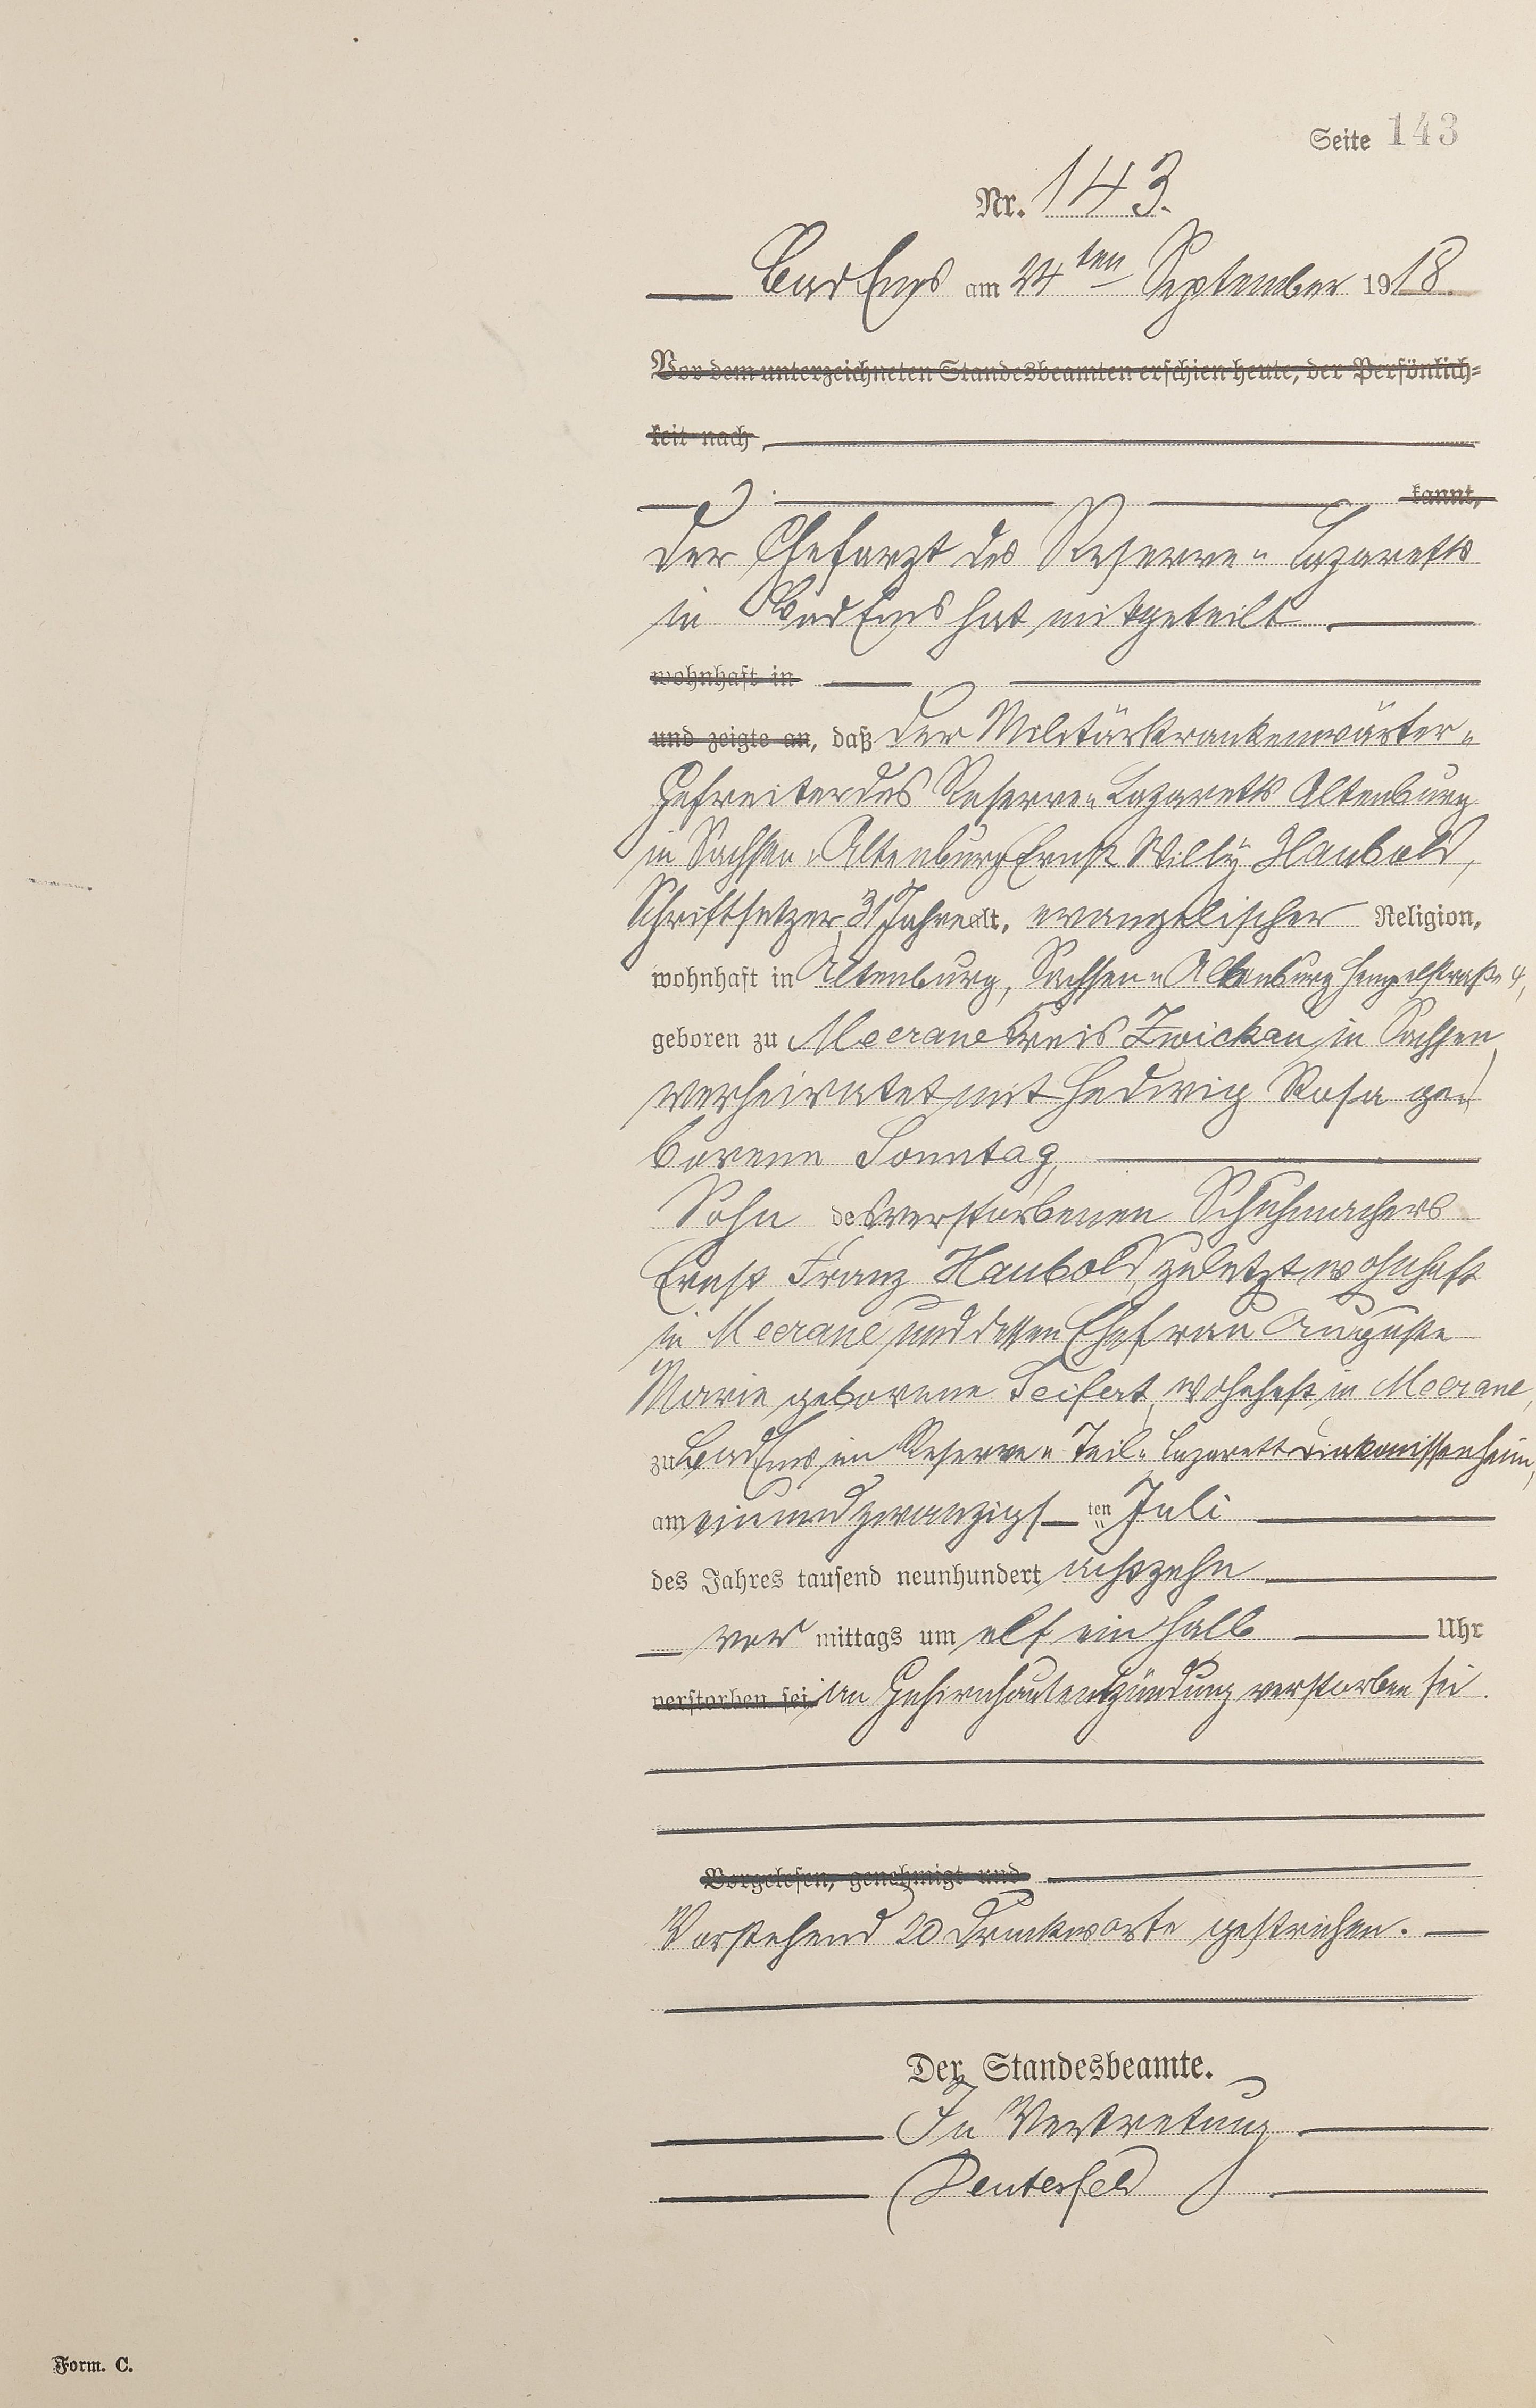 Seite 143
Nr. 143.
Bad Ems am 24ten September 1918.
Vor dem unterzeichneten Standesbeamten erschien heute, der Persönlich-
keit nach
kannt,
Der Chefarzt des Reserve-Lazaretts
in Bad Ems hat mitgeteilt
wohnhaft in
und zeigte an, daß der Militärkrankenwärter-
Gefreiter des Reserve-Lazaretts Altenburg
in Sachsen-Altenburg Ernst Willy Haubold,
Schriftsetzer, 31 Jahre alt, evangelischer Religion,
wohnhaft in Altenburg, Sachsen-Altenburg 4,
geboren zu Meerane Kreis Zwickau in Sachsen,
verheiratet mit Hedwig Rosa ge-
borene Sonntag,
Sohn des verstorbenen Schuhmachers
Ernst Franz Haubold, zuletzt wohnhaft
in Meerane und dessen Ehefrau Auguste
Marie geborene Seifert, wohnhaft in Meerane,
zu Bad Ems im Reserve-Teil-Lazarett Diakonissenheim,
am einundzwanzigsten Juli
des Jahres tausend neunhundert achtzehn
vor mittags um elf ein halb Uhr
verstorben sei, an Gehirnhautentzündung verstorben sei.
Vorgelesen, genehmigt und
Vorstehend 20 Druckworte gestrichen.
Der Standesbeamte.
In Vertretung
Form. C.